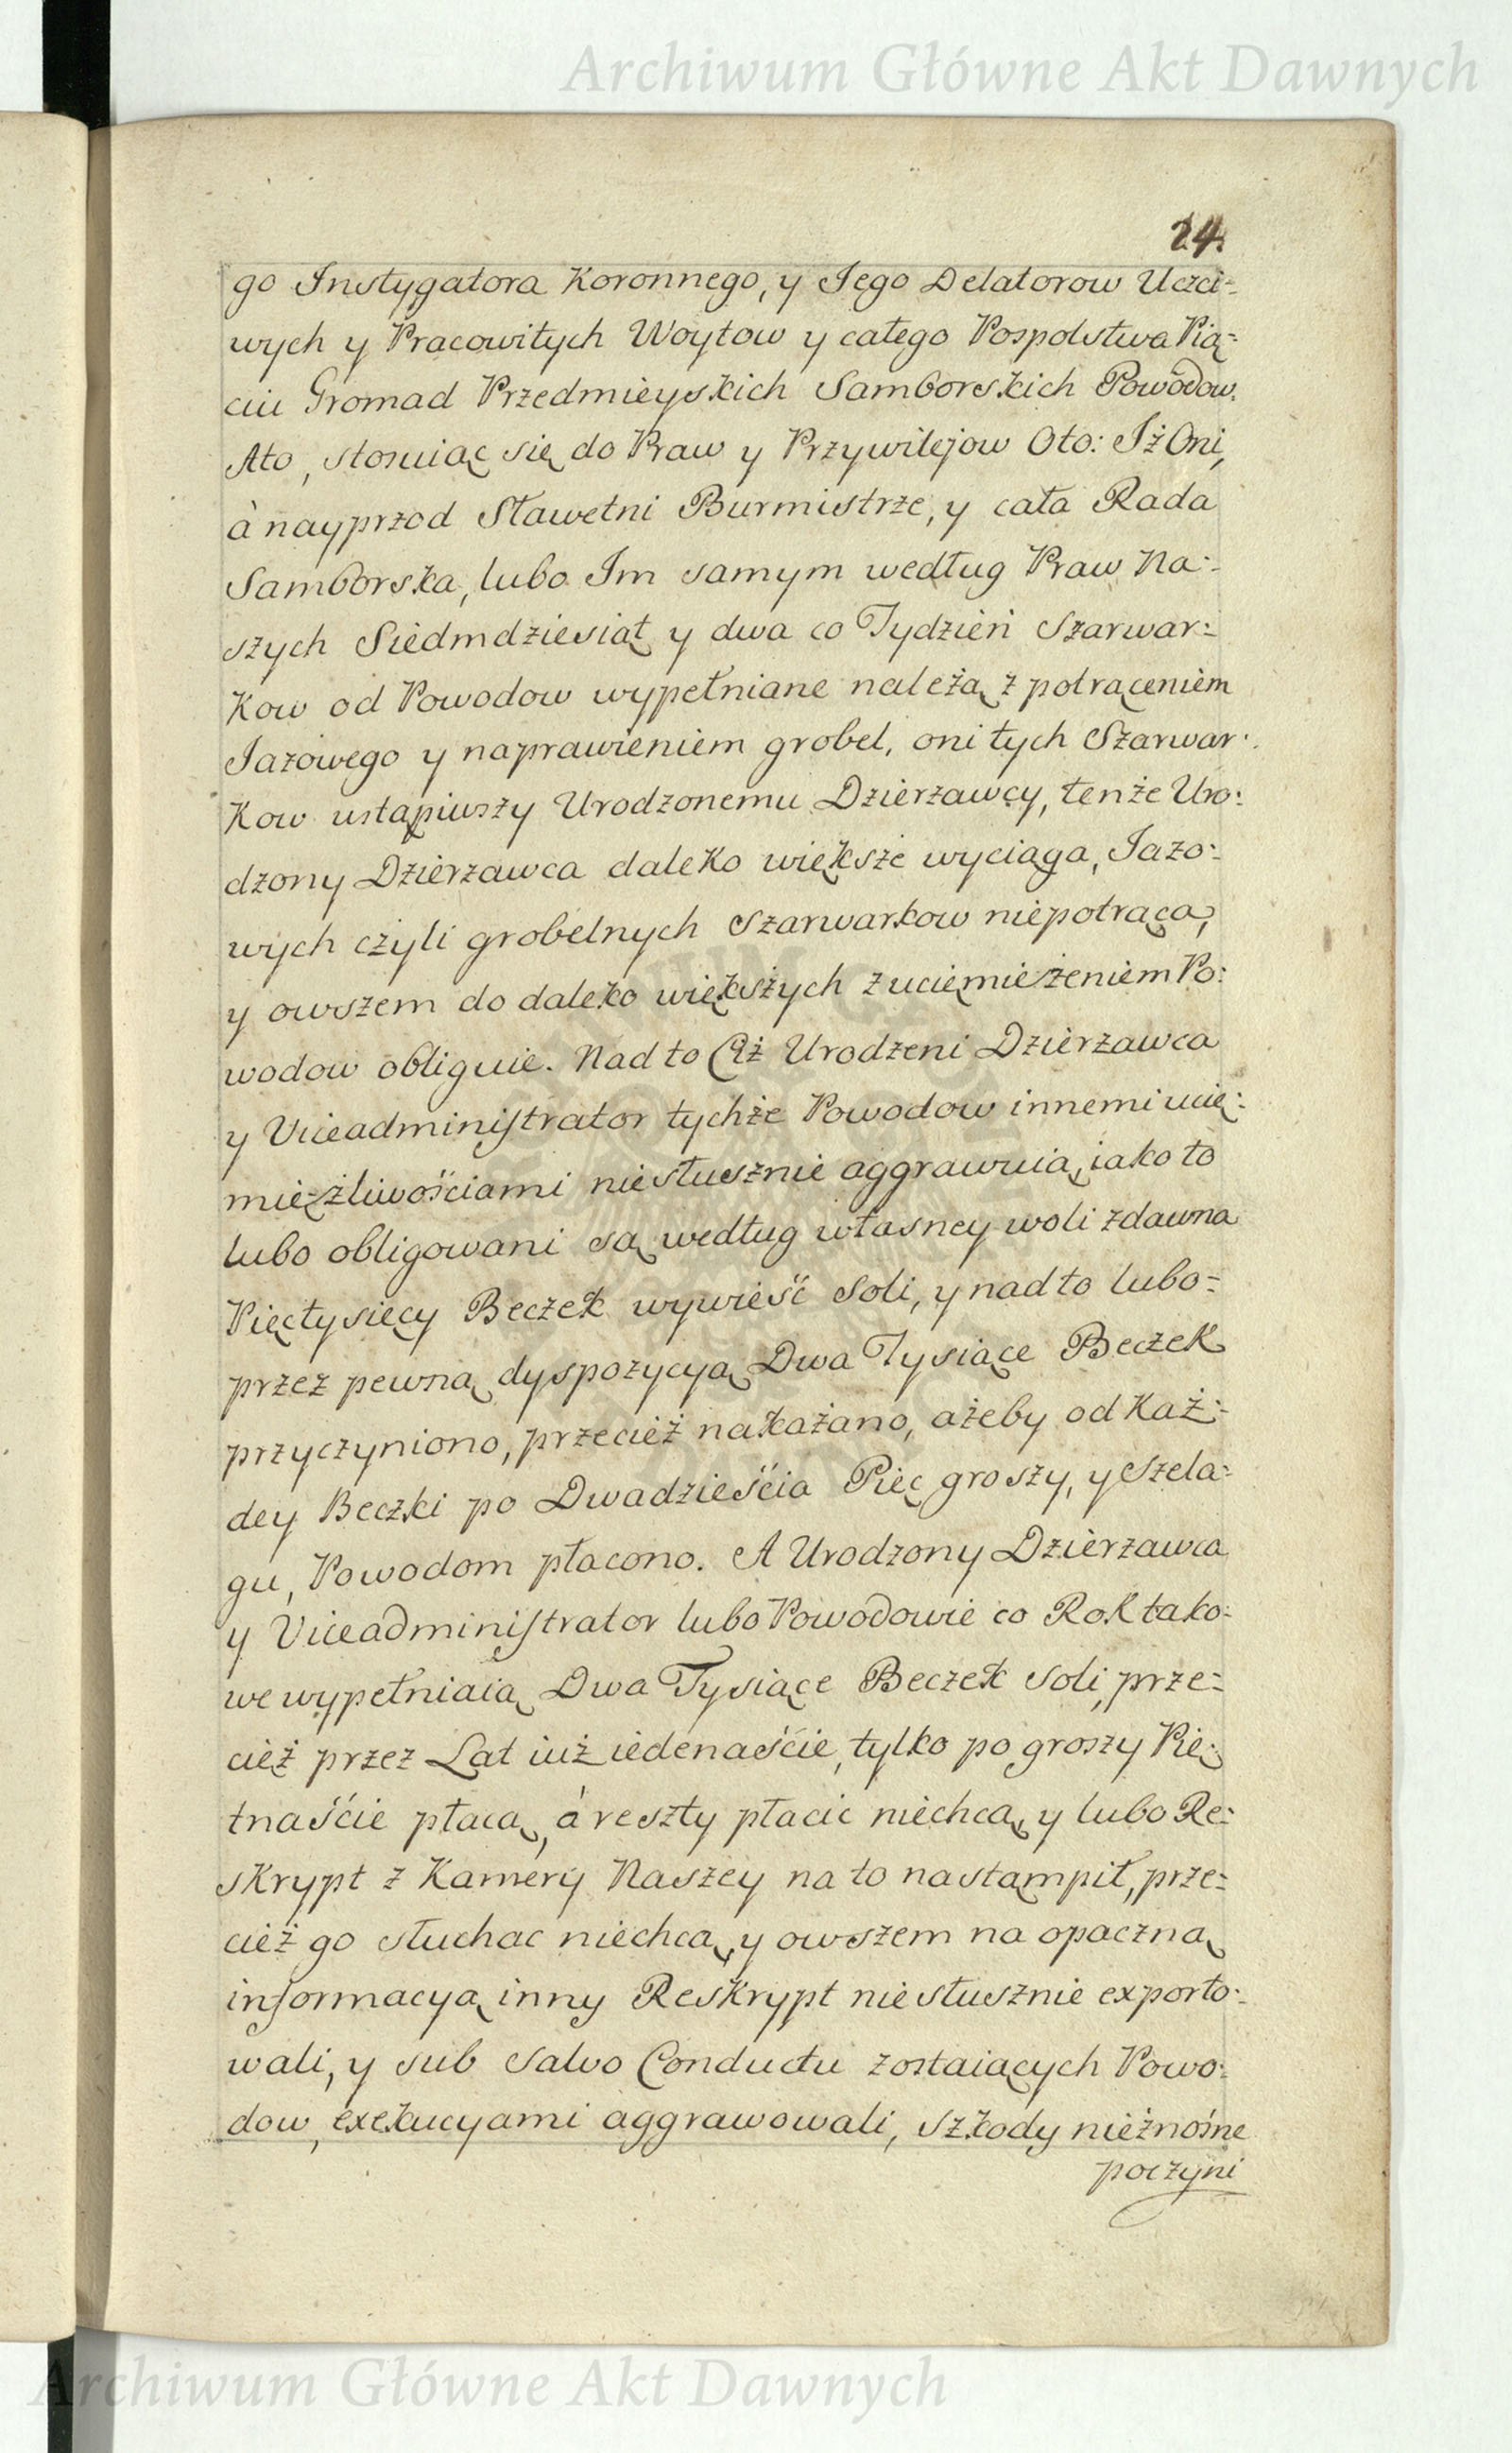 Archiwum Główne Akt Dawnych
24.
go Instygatora Koronnego, y Jego Delatorow Uczci=
wych y Pracowitych Woytow y całego Pospolstwa Pią=
ciu Gromad Przedmieyskich Samborskich Powodow.
Ato, stosuiąc się do Praw y Przywilejow Oto: Iż Oni,
à nayprzod Sławetni Burmistrze, y cała Rada
Samborska, lubo Im samym według Praw Na=
szych Siedmdziesiąt y dwa co Tydzień Szarwar=
kow od Powodow wypełniane należą z potrąceniem
Jazowego y naprawieniem grobel, oni tych Szarwar=
kow ustąpiwszy Urodzonemu Dzierzawcy, tenże Uro=
dzony Dzierzawca daleko większe wyciąga, Jazo=
wych czyli grobelnych Szarwarkow niepotrąca,
y owszem do daleko większych z uciemieżeniem Po=
wodow obliguie. Nad to Ciż Urodzeni Dzierzawca
y Viceadministrator tychże Powodow innemi ucię=
mięzżliwościami niesłusznie aggrawuią, iako to
lubo obligowani są według własney woli zdawna
Pięćtysięcy Beczek wywieść Soli, y nad to lubo=
przez pewną dyspozycyą Dwa Tysiące Beczek
przyczyniono, przecież nakażano, ażeby od Każ=
dey Beczki po Dwadzieścia Pięc groszy, y szelą=
gu, Powodom płacono. A Urodzony Dzierzawca
y Viceadministrator lubo Powodowie co Rok tako=
we wypełniaią Dwa Tysiące Beczek Soli, prze=
cięż przez Lat iuż iedenaście, tylko po groszy Pię=
tnaście płacą, à reszty płacic niechcą, y lubo Re=
skrypt z Kamery Naszey na to nastąmpił, prze=
cież go słuchac niechcą, y owszem na opaczną
informacyą inny Reskrypt niesłusznie exporto=
wali, y sub Salvo Conductu zostaiących Powo=
dow, exekucyami aggrawowali, szkody nieżnośne
poczyni
Archiwum Główne Akt Dawnych